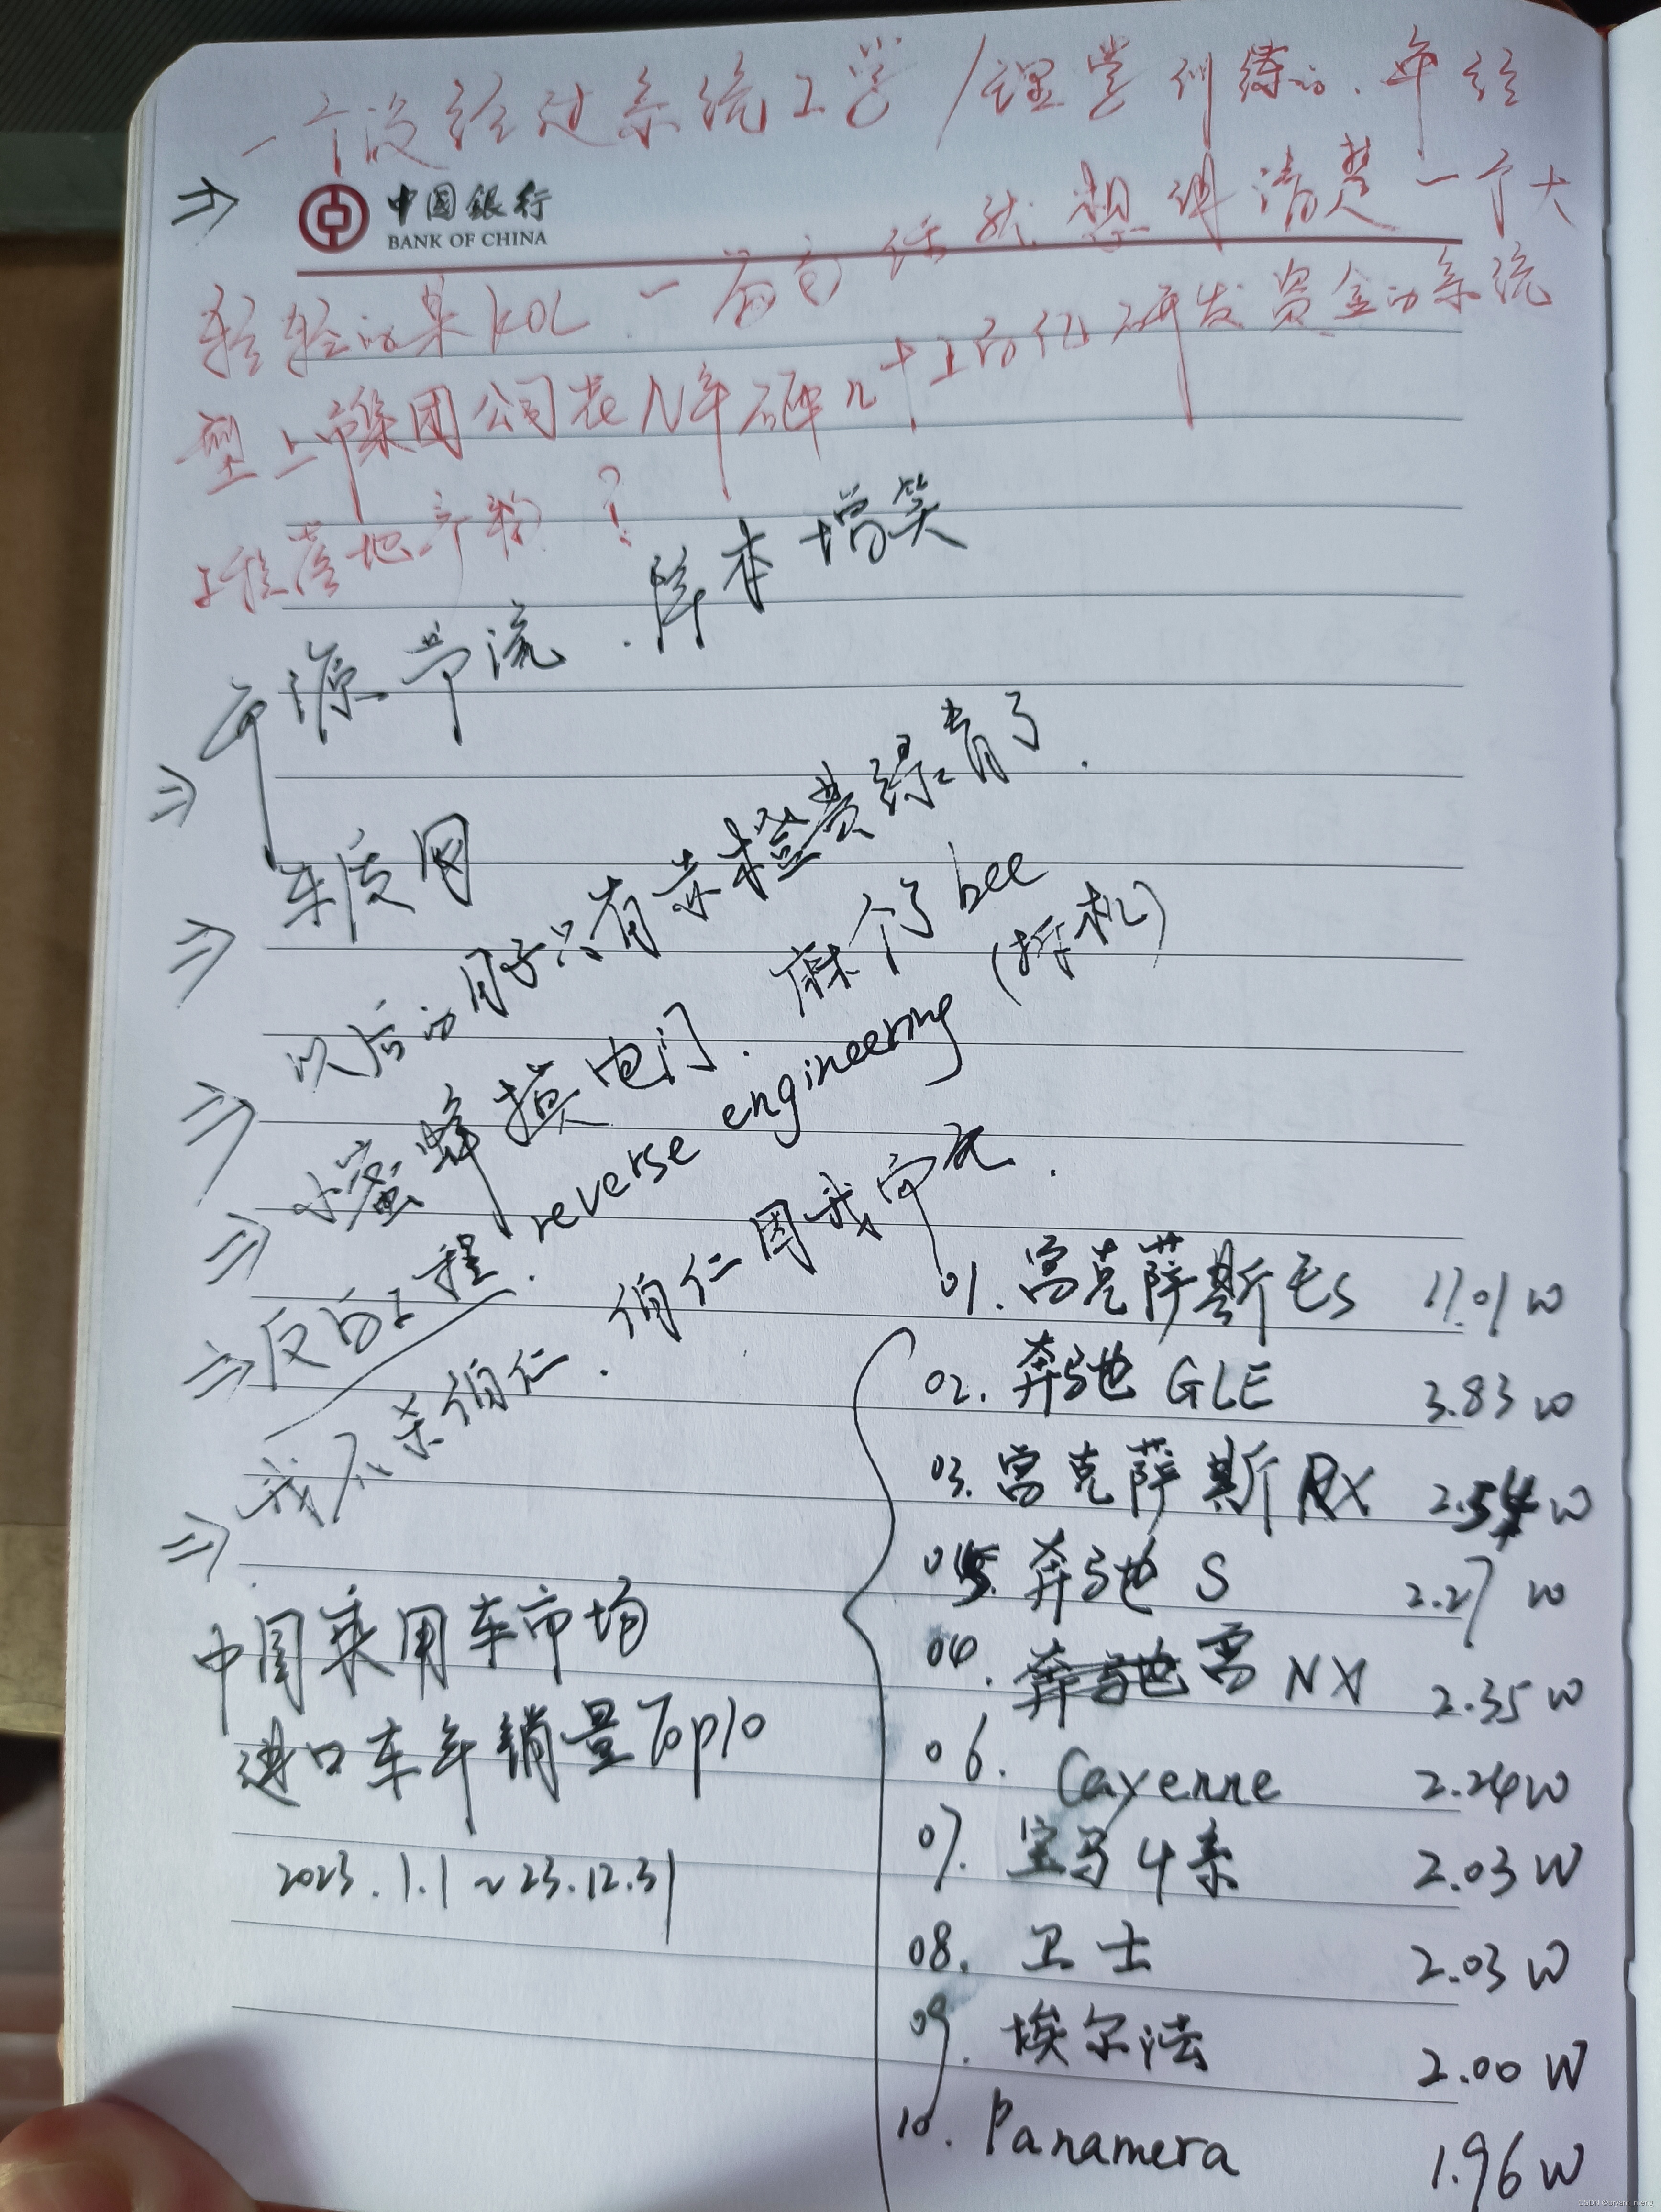 一个没经过系统工学/理学训练的、年轻
中国银行
BANK OF CHINA
轻轻的某KOL 一前句话就想讲清楚一个大
型上市集团公司花N年砸几十上百亿研发资金的系统
工程落地产物?
开源节流.降本增笑
⇒
车质网
⇒
以后的日子只有赤橙黄绿青了.
⇒
小蜜蜂摸电门.麻个了bee
⇒
反向工程.reverse engineering (拆机)
⇒
我不杀伯仁.伯仁因我而死.
⇒
中国乘用车市场
进口车年销量Top10
2023.1.1~23.12.31
01.雷克萨斯ES 11.01W
02.奔驰GLE 3.83W
03.雷克萨斯RX 2.54W
05.奔驰S 2.27W
04.雷NX 2.35W
06.Cayenne 2.24W
07.宝马4系 2.03W
08.卫士 2.03W
09.埃尔法 2.00W
10.Panamera 1.96W
CSDN @bryant_meng